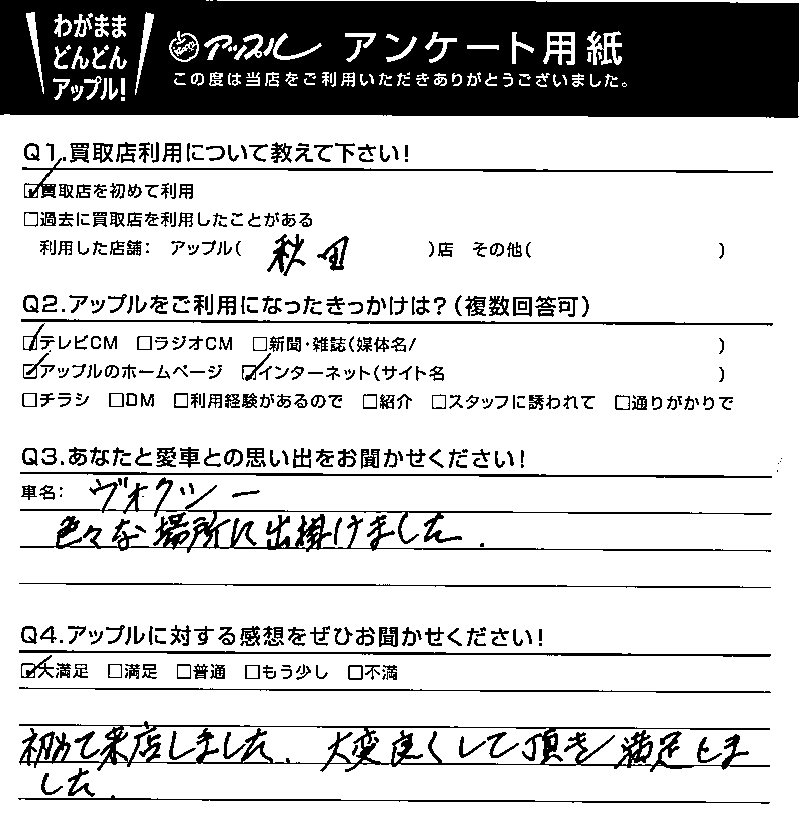 わがまま
どんどん
アップル!
アップル アンケート用紙
この度は当店をご利用いただきありがとうございました。
Q1.買取店利用について教えて下さい!
☑買取店を初めて利用
□過去に買取店を利用したことがある
利用した店舗: アップル( 秋田 )店 その他( )
Q2.アップルをご利用になったきっかけは?(複数回答可)
☑テレビCM □ラジオCM □新聞・雑誌(媒体名/ )
☑アップルのホームページ ☑インターネット(サイト名 )
□チラシ □DM □利用経験があるので □紹介 □スタッフに誘われて □通りがかりで
Q3.あなたと愛車との思い出をお聞かせください!
車名: ヴオクシー
色々な場所に出掛けました.
Q4.アップルに対する感想をぜひお聞かせください!
☑大満足 □満足 □普通 □もう少し □不満
初めて来店しました. 大変良くして頂き満足しま
した.